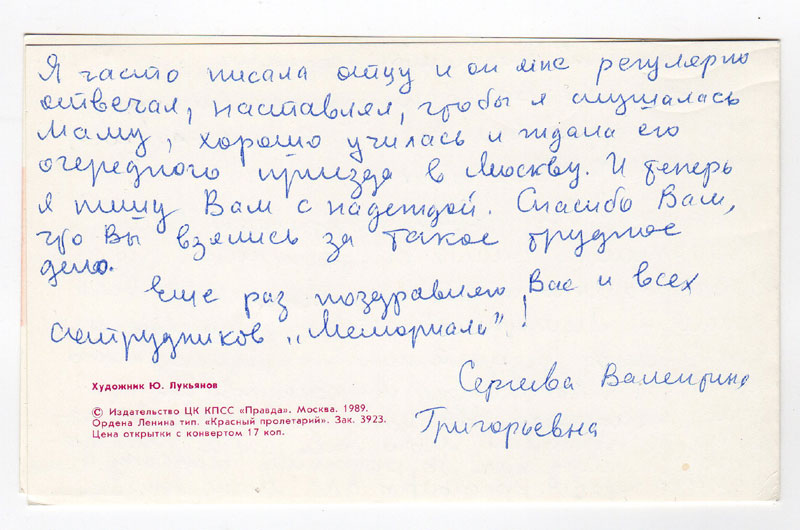 Я часто писала отцу и он мне регулярно
отвечал, наставлял, чтобы я слушалась
маму, хорошо училась и ждала его
очередного приезда в Москву. И теперь
я пишу Вам с надеждой. Спасибо Вам,
что Вы взялись за такое трудное
дело.
Еще раз поздравляю Вас и всех
сотрудников „Мемориала"!
Сергеева Валентина
Григорьевна
Художник Ю. Лукьянов
© Издательство ЦК КПСС «Правда». Москва. 1989.
Ордена Ленина тип. «Красный пролетарий». Зак. 3923.
Цена открытки с конвертом 17 коп.